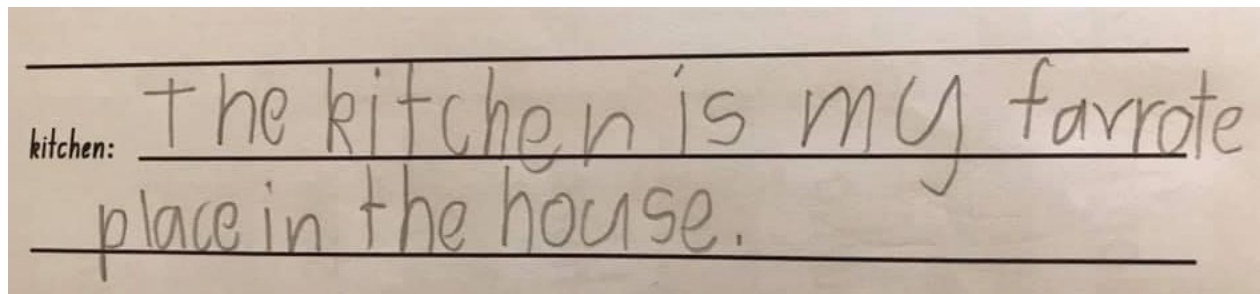 kitchen: The kitchen is my favrote
place in the house.